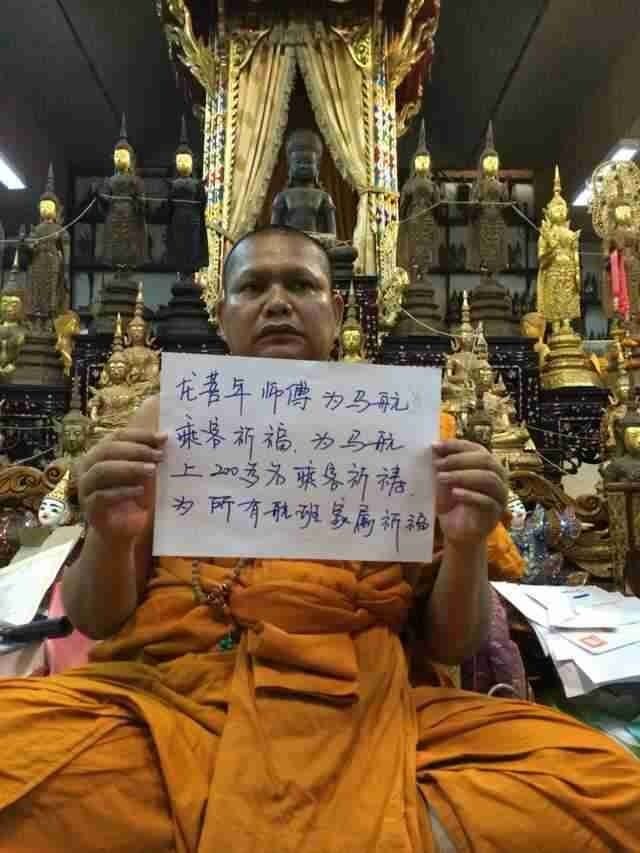 龙普年师傅为马航
乘客祈福.为马航
上200多名乘客祈祷.
为所有航班家属祈福